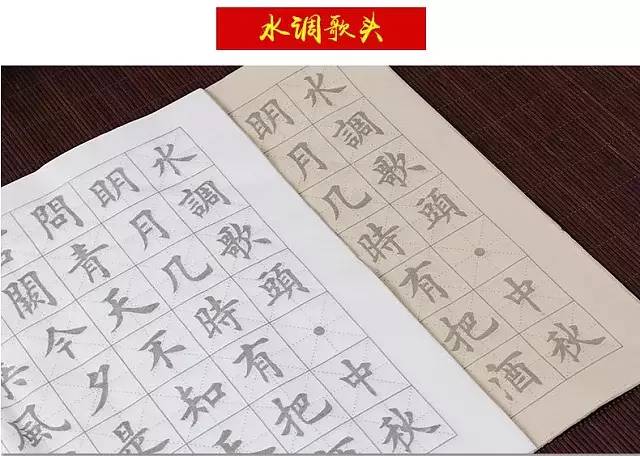 水调歌头
水調歌頭·中秋
明月几時有把酒
水調歌頭·中秋
明月几時有把
問青天不知天
闕今夕是
風